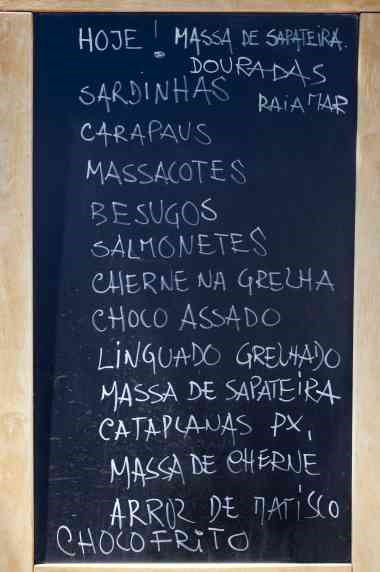 HOJE! MASSA DE SAPATEIRA.
DOURADAS
SARDINHAS
RAIA MAR
CARAPAUS
MASSACOTES
BESUGOS
SALMONETES
CHERNE NA GRELHA
CHOCO ASSADO
LINGUADO GRELHADO
MASSA DE SAPATEIRA
CATAPLANAS PX,
MASSA DE CHERNE
ARROZ DE MATISCO
CHOCO FRITO